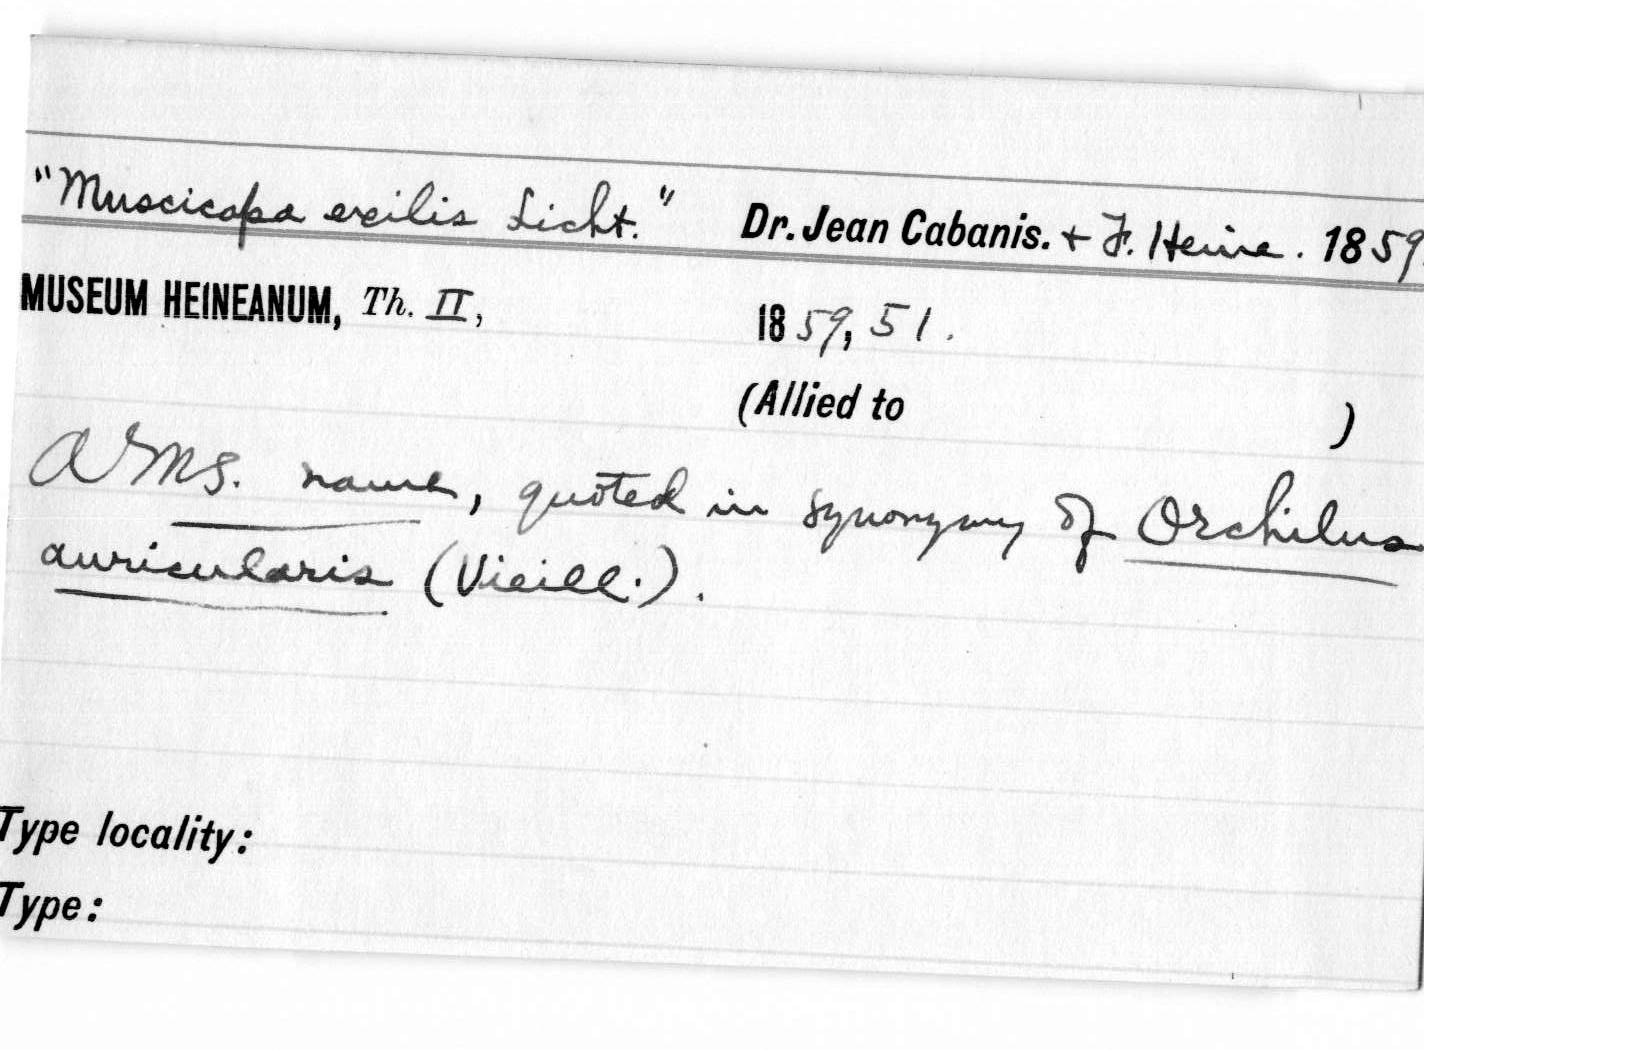 "Muscicapa exilis Licht." Dr. Jean Cabanis. + F. Heine. 1859.
MUSEUM HEINEANUM, Th. II, 1859, 51.
(Allied to )
A MS. name, quoted in synonymy of Orchilus
auricularis (Vieill.).
Type locality:
Type: